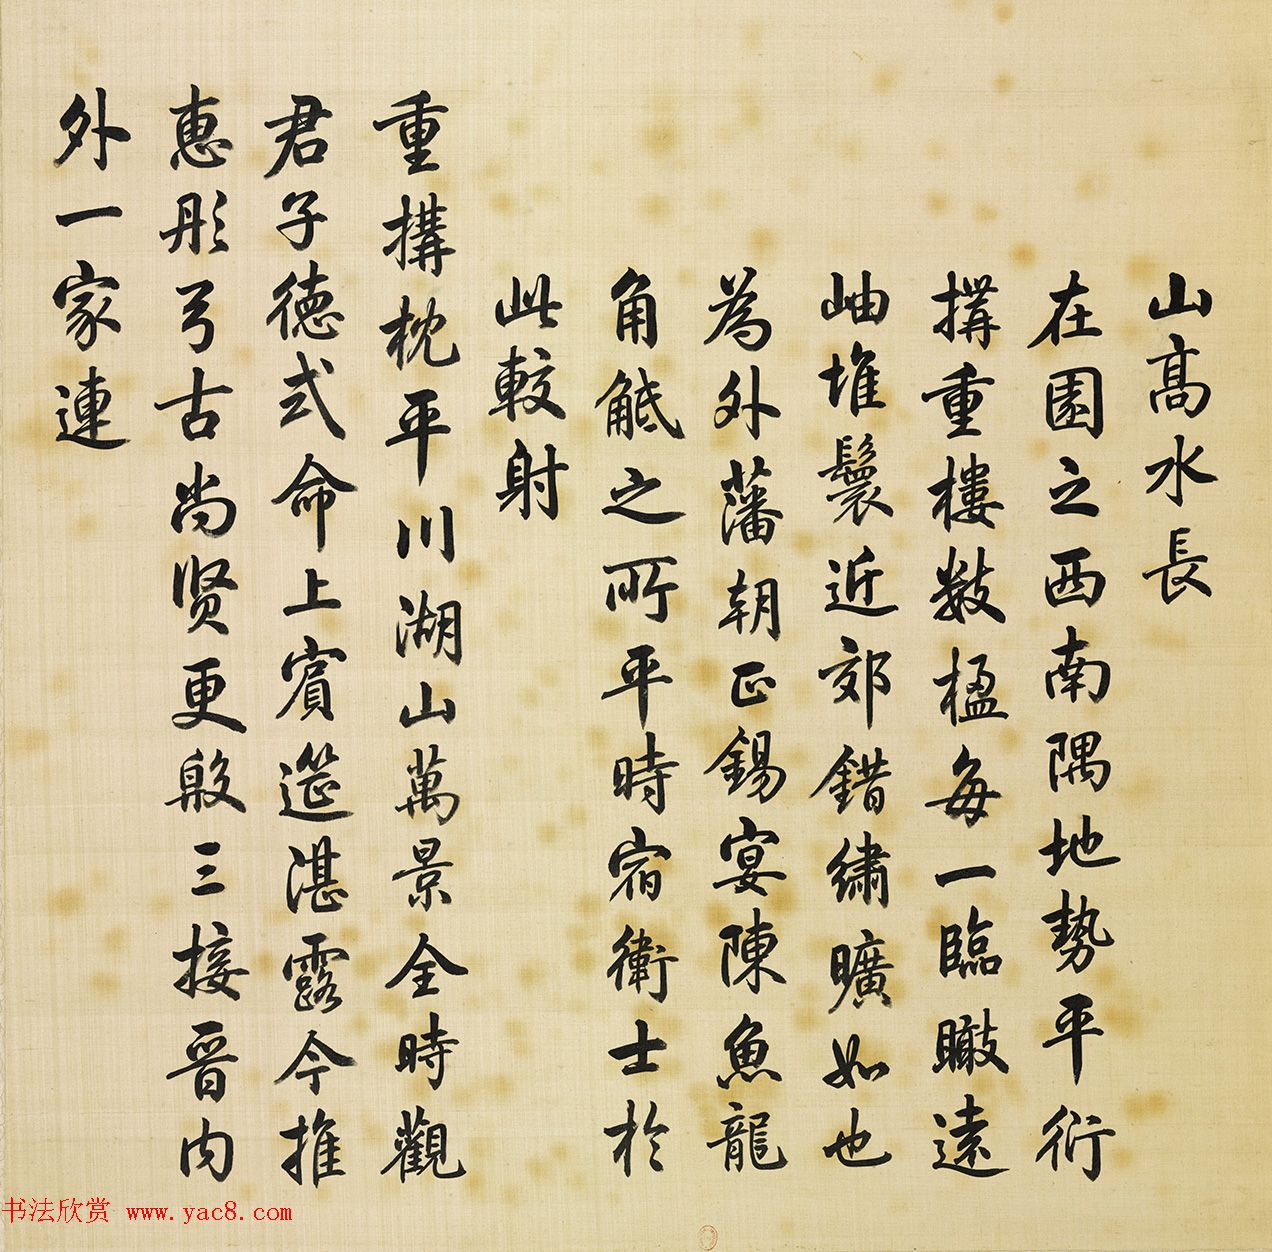 山高水長
在園之西南隅地勢平衍
搆重樓数楹每一臨瞰遠
岫堆鬟近郊錯繡曠如也
為外藩朝正錫宴陳魚龍
角觝之所平時宿衛士於
此較射
重搆枕平川湖山萬景全時觀
君子德式命上賓筵湛露今推
惠彤弓古尚贤更殷三接晉内
外一家連
书法欣赏 www.yac8.com